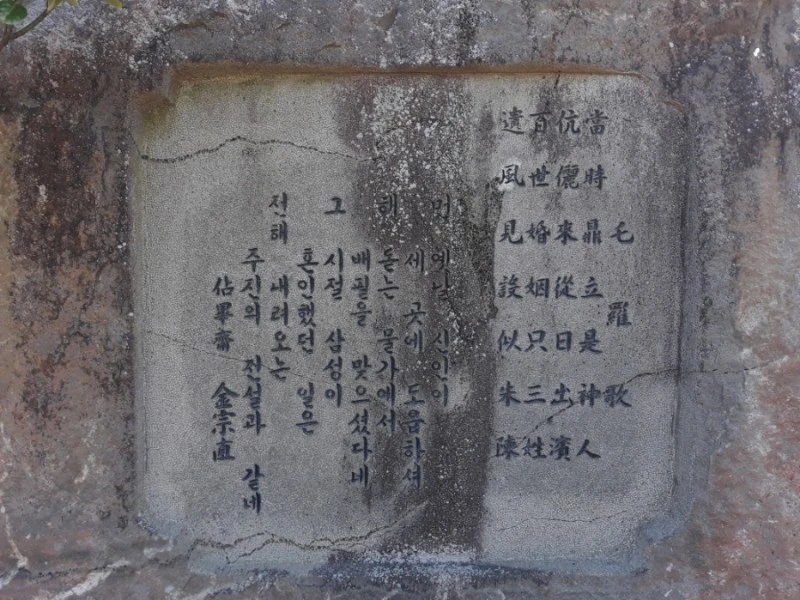 乇羅歌
當時鼎立是神人
伉儷來從日出濱
百世婚姻只三姓
遺風見說似朱陳
먼 옛날 신인이
세 곳에 도읍하셔
해 돋는 물가에서
배필을 맞으셨다네
그 시절 삼성이
혼인했던 일은
전해 내려오는
주진의 전설과 같네
佔畢齋 金宗直